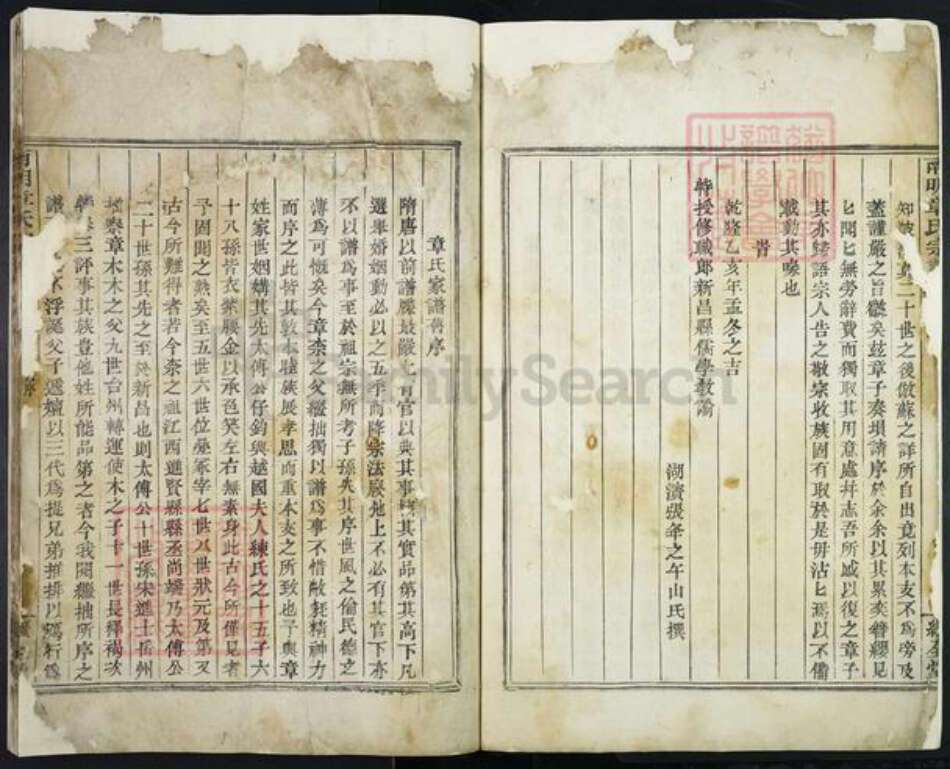 南明章氏宗
知
二十世之後倣蘇之詳所自出竟列本支不為旁及
蓋謹嚴之旨歟矣玆章子奏塤請序於余余以其累奕簪纓見
匕聞匕無勞辭費而獨取其用意處幷志吾所感以復之章子
其亦歸語宗人告之敬宗收族固有取於是毋沾匕焉以不備
載動其喙也
旹
乾隆乙亥年孟冬之吉
特授修職郎新昌縣儒學教諭
湖濱張年之午山氏撰
章氏家譜舊序
隋唐以前譜牒最嚴上有官以典其事覈其實品第其高下凡
選舉婚姻動必以之五季而降宗法廢弛上不必有其官下亦
不以譜爲事至於祖宗無所考子孫失其序世風之偷民德之
薄爲可慨矣今章柰之父繼拙獨以譜爲事不惜敝耗精神力
而序之此皆其敦本睦族展孝思而重本支之所致也予與章
姓家世姻媾其先太傅公仔鈞與越國夫人練氏之十五子六
十八孫皆衣紫腰金以承色笑左右無素身此古今所僅見者
予固聞之熟矣至五世六世位登冢宰七世八世狀元及第又
古今所難得者若今柰之祖江西進賢縣縣丞尚
乃太傅公
二十世孫其先之至於新昌也則太傅公十世孫宋進士岳州
察章木木之父九世台州轉運使木之子十一世長繹褐次
三評事其族豈他姓所能品第之者今我閱繼拙所序之
譜
不浮誕父子遞嬗以三代爲提兄弟排排以鴈行爲
南明章氏
序
FamilySearch